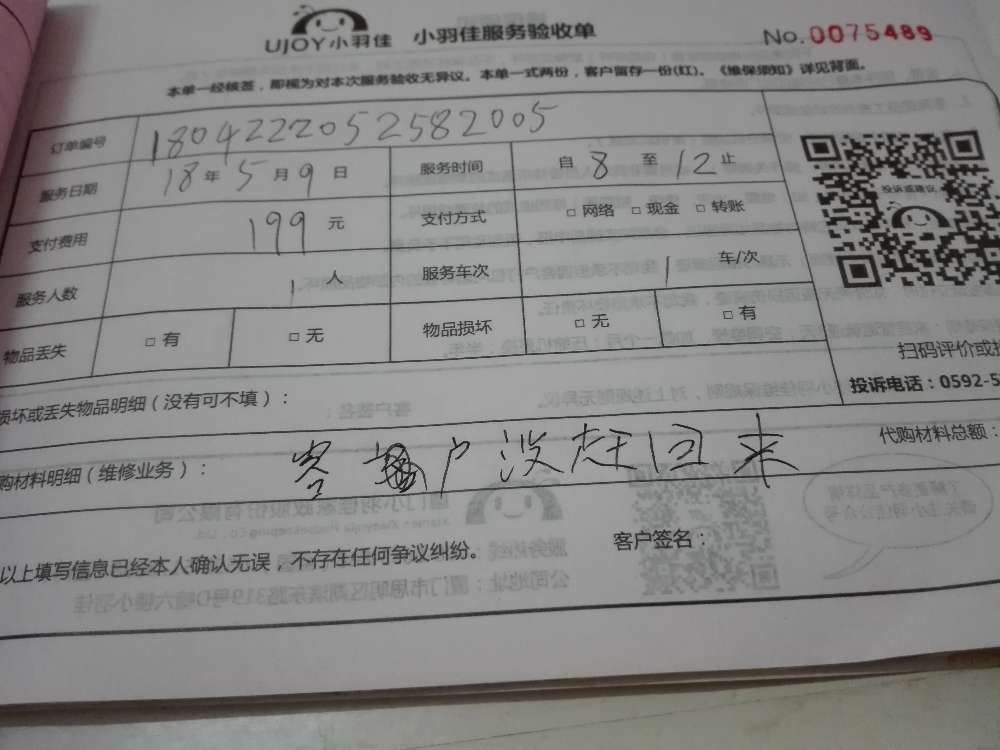 UJOY小羽佳 小羽佳服务验收单 No.0075489
本单一经核签，即视为对本次服务验收无异议。本单一式两份，客户留存一份(红)。《维保须知》详见背面。
订单编号 1804222052582005
服务日期 18年5月9日 服务时间 自8至12止
支付费用 199元 支付方式 □网络 □现金 □转账
服务人数 1人 服务车次 1车/次
物品丢失 □有 □无 物品损坏 □无 □有
投诉或建议
扫码评价或
投诉电话：0592-5
损坏或丢失物品明细（没有可不填）：
购材料明细（维修业务）： 客户没赶回来 代购材料总额：
以上填写信息已经本人确认无误，不存在任何争议纠纷。 客户签名：